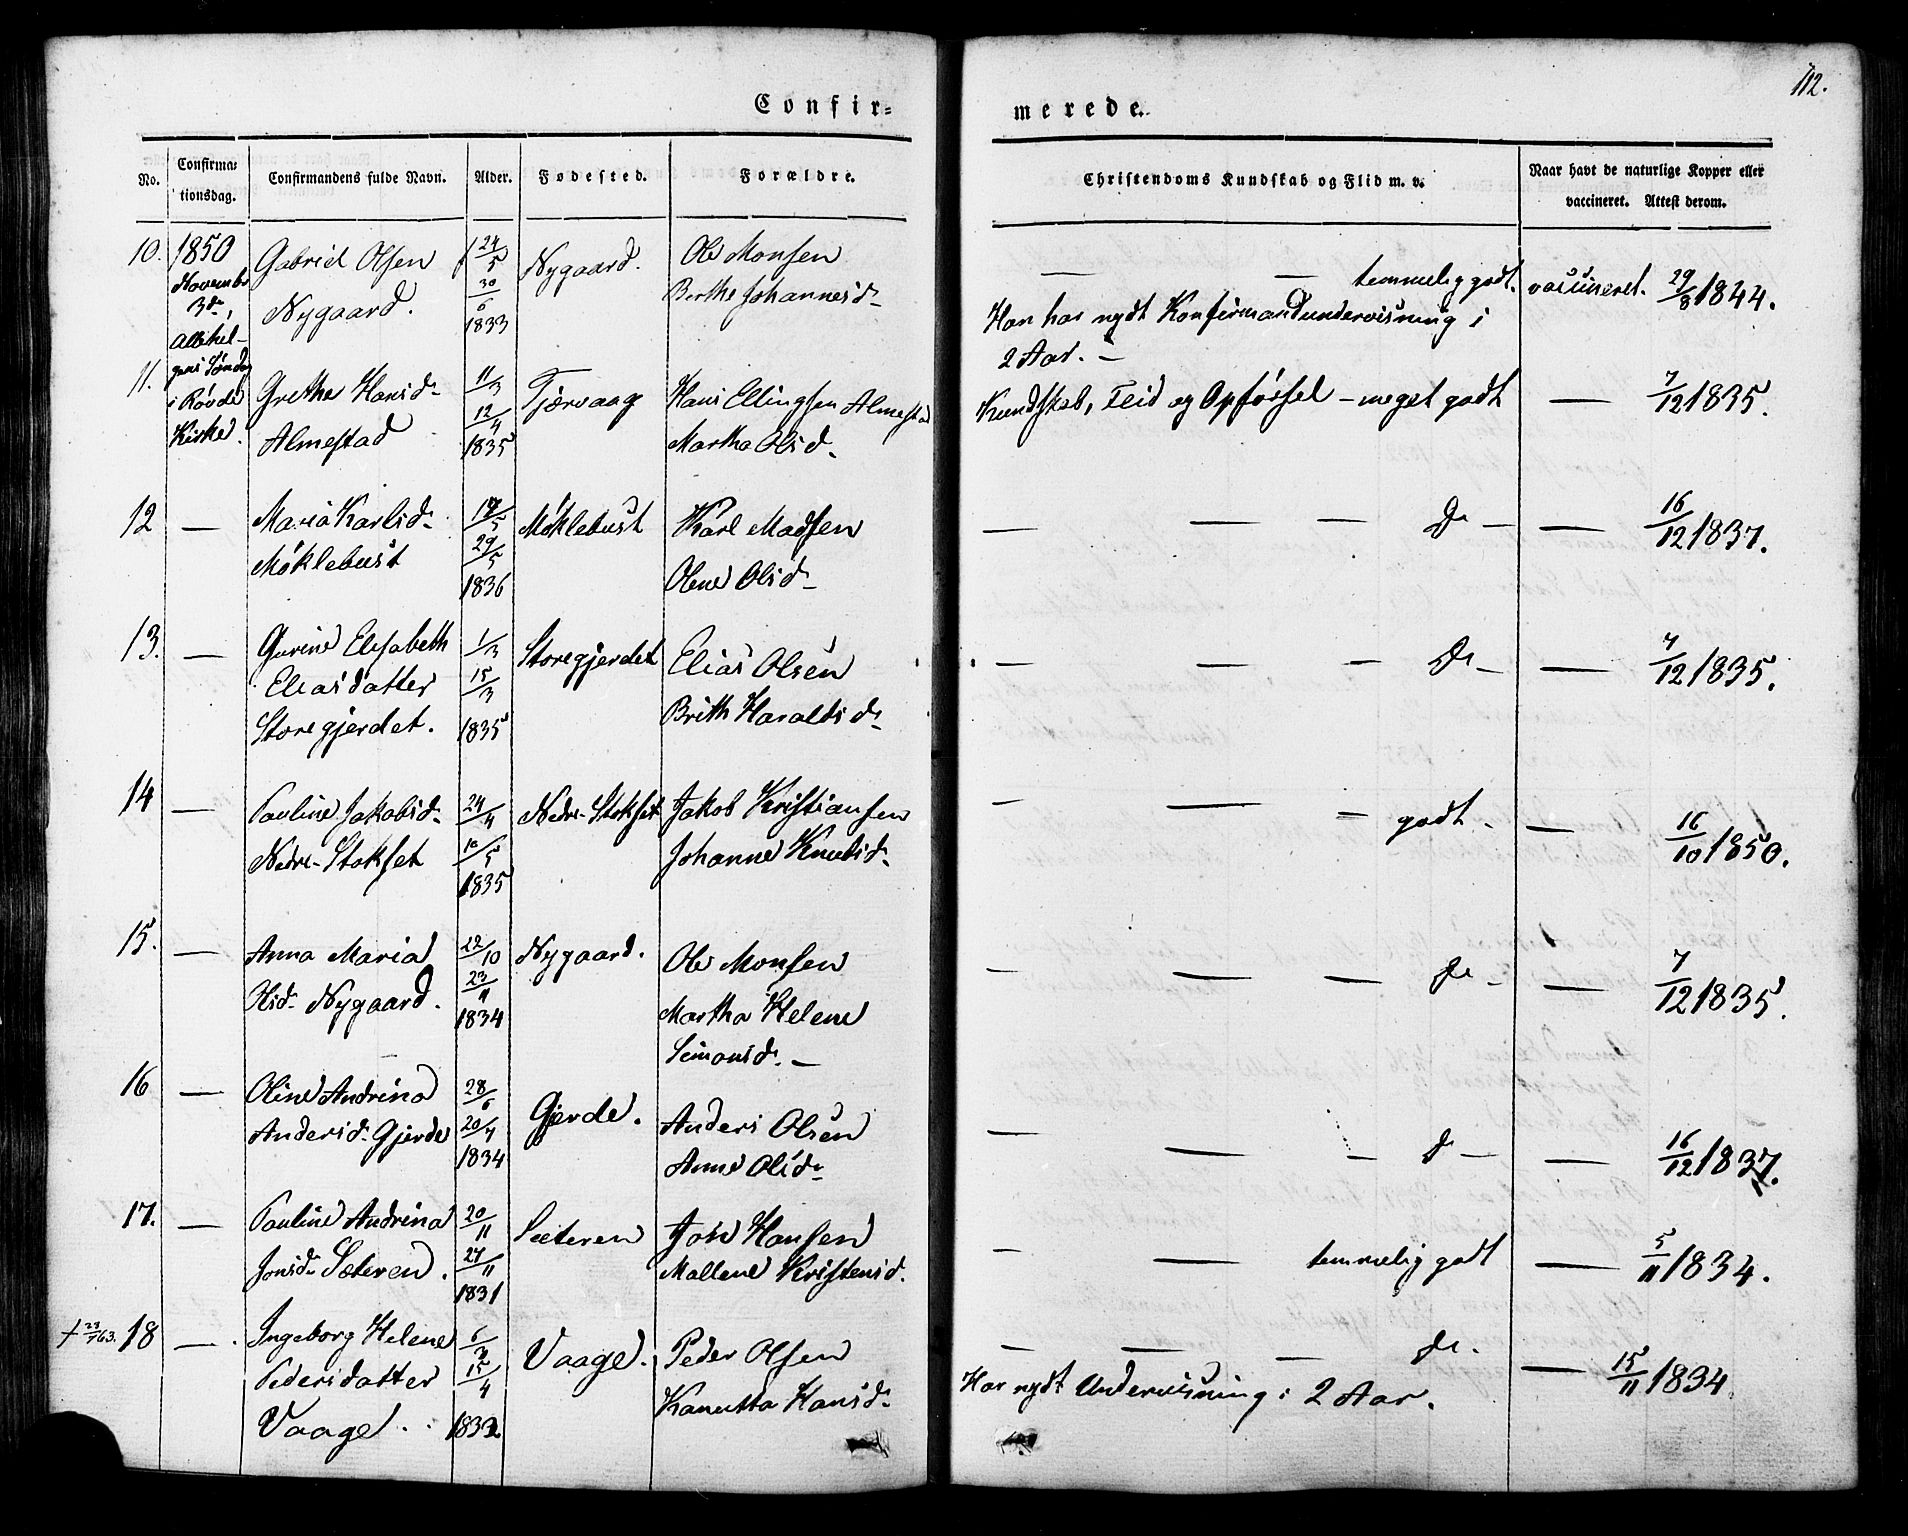 112.
Confir=
merede.
No.
Confirma=
tionsdag.
Confirmandens fulde Navn.
Alder.
Fødested.
Forældre.
Christendoms Kundskab og Flid m. v.
Naar havt de naturlige Kopper eller
vaccineret. Attest derom.
10. 1850 Gabriel Olsen 24/5 Nygaard. Ole Monsen — — temmelig godt. vaccineret. 29/8 1844.
Novembr Nygaard. 30/6 Berthe Johannesd. Han har nydt Konfirmandundervisning i
3d, 1833 2 Aar. —
Allehel-
gens Søndag
i Røvde
Kirke.
11. Grethe Hansd. 11/3 Tjervaag Hans Ellingsen Almestad Kundskab, Flid og Opførsel – meget godt — 7/12 1835.
Almestad 12/4 Martha Olsd.
1835
12 — Maria Karlsd. 5 Møklebust Karl Madsen — — — Do — — 16/12 1837.
Møklebust 29/5 Olene Olsd.
1836
13. — Gurine Elisabeth 1/3 Storegjerdet Elias Olsen — — — Do — — 7/12 1835.
Eliasdatter 15/3 Brith Haraldsd.
Storegjerdet. 1835
14 — Pauline Jakobsd. 24/4 Nedre-Stokset Jakob Kristiansen — — — godt. — 16/10 1850.
Nedre-Stokset 10/5 Johanne Knudsd.
1835
15. — Anna Maria 22/10 Nygaard. Ole Monsen — — — Do — — 7/12 1835.
Olsd. Nygaard. 23/11 Martha Helene
1834 Simonsd. —
16 — Oline Andrina 28/6 Gjerde. Anders Olsen — — — Do — — 16/12 1837.
Andersd. Gjerde 20/7 Anne Olsd.
1834
17. — Pauline Andrina 20/11 Sæteren Jon Hansen — — temmelig godt — 5/11 1834.
Jonsd. Sæteren. 27/11 Mallene Kristensd.
1831
† 23/7 63. 18 — Ingeborg Helene 6/3 Vaage. Peder Olsen — — — Do. — 15/11 1834
Pedersdatter 15/4 Kanutta Hansd. Har nydt Undervisning i 2 Aar.
Vaage.